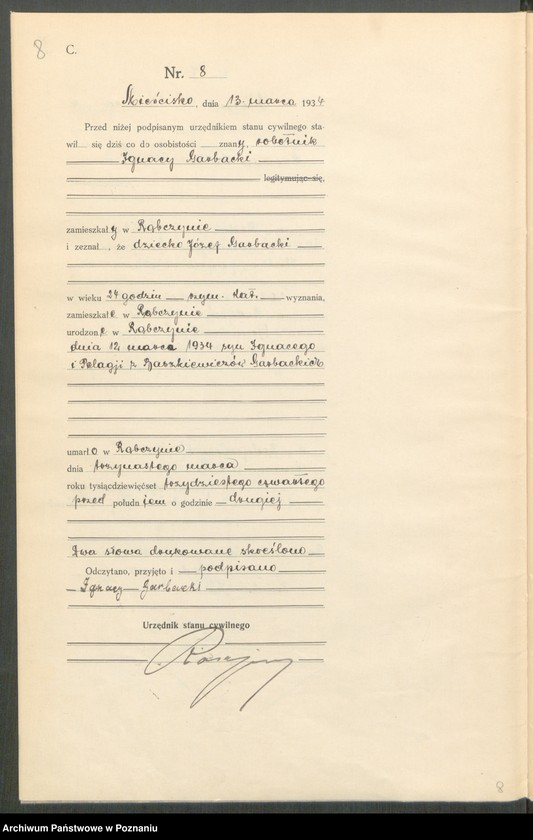 8 C.
Nr. 8
Mieścisko, dnia 13. marca 1934
Przed niżej podpisanym urzędnikiem stanu cywilnego sta-
wił się dziś co do osobistości znany, robotnik
Ignacy Garbacki
legitymując się,
zamieszkały w Rąbczynie
i zeznał, że dziecko Józef Garbacki
w wieku 24 godzin rzym. kat. wyznania,
zamieszkałe w Rąbczynie
urodzone w Rąbczynie
dnia 12 marca 1934 syn Ignacego
i Pelagji z Baszkiewiczów Garbackich
umarło w Rąbczynie
dnia trzynastego marca
roku tysiącdziewięćset trzydziestego czwartego
przed południem o godzinie drugiej
Dwa słowa drukowane skreślono
Odczytano, przyjęto i podpisano
Ignacy Garbacki
Urzędnik stanu cywilnego
8
Archiwum Państwowe w Poznaniu